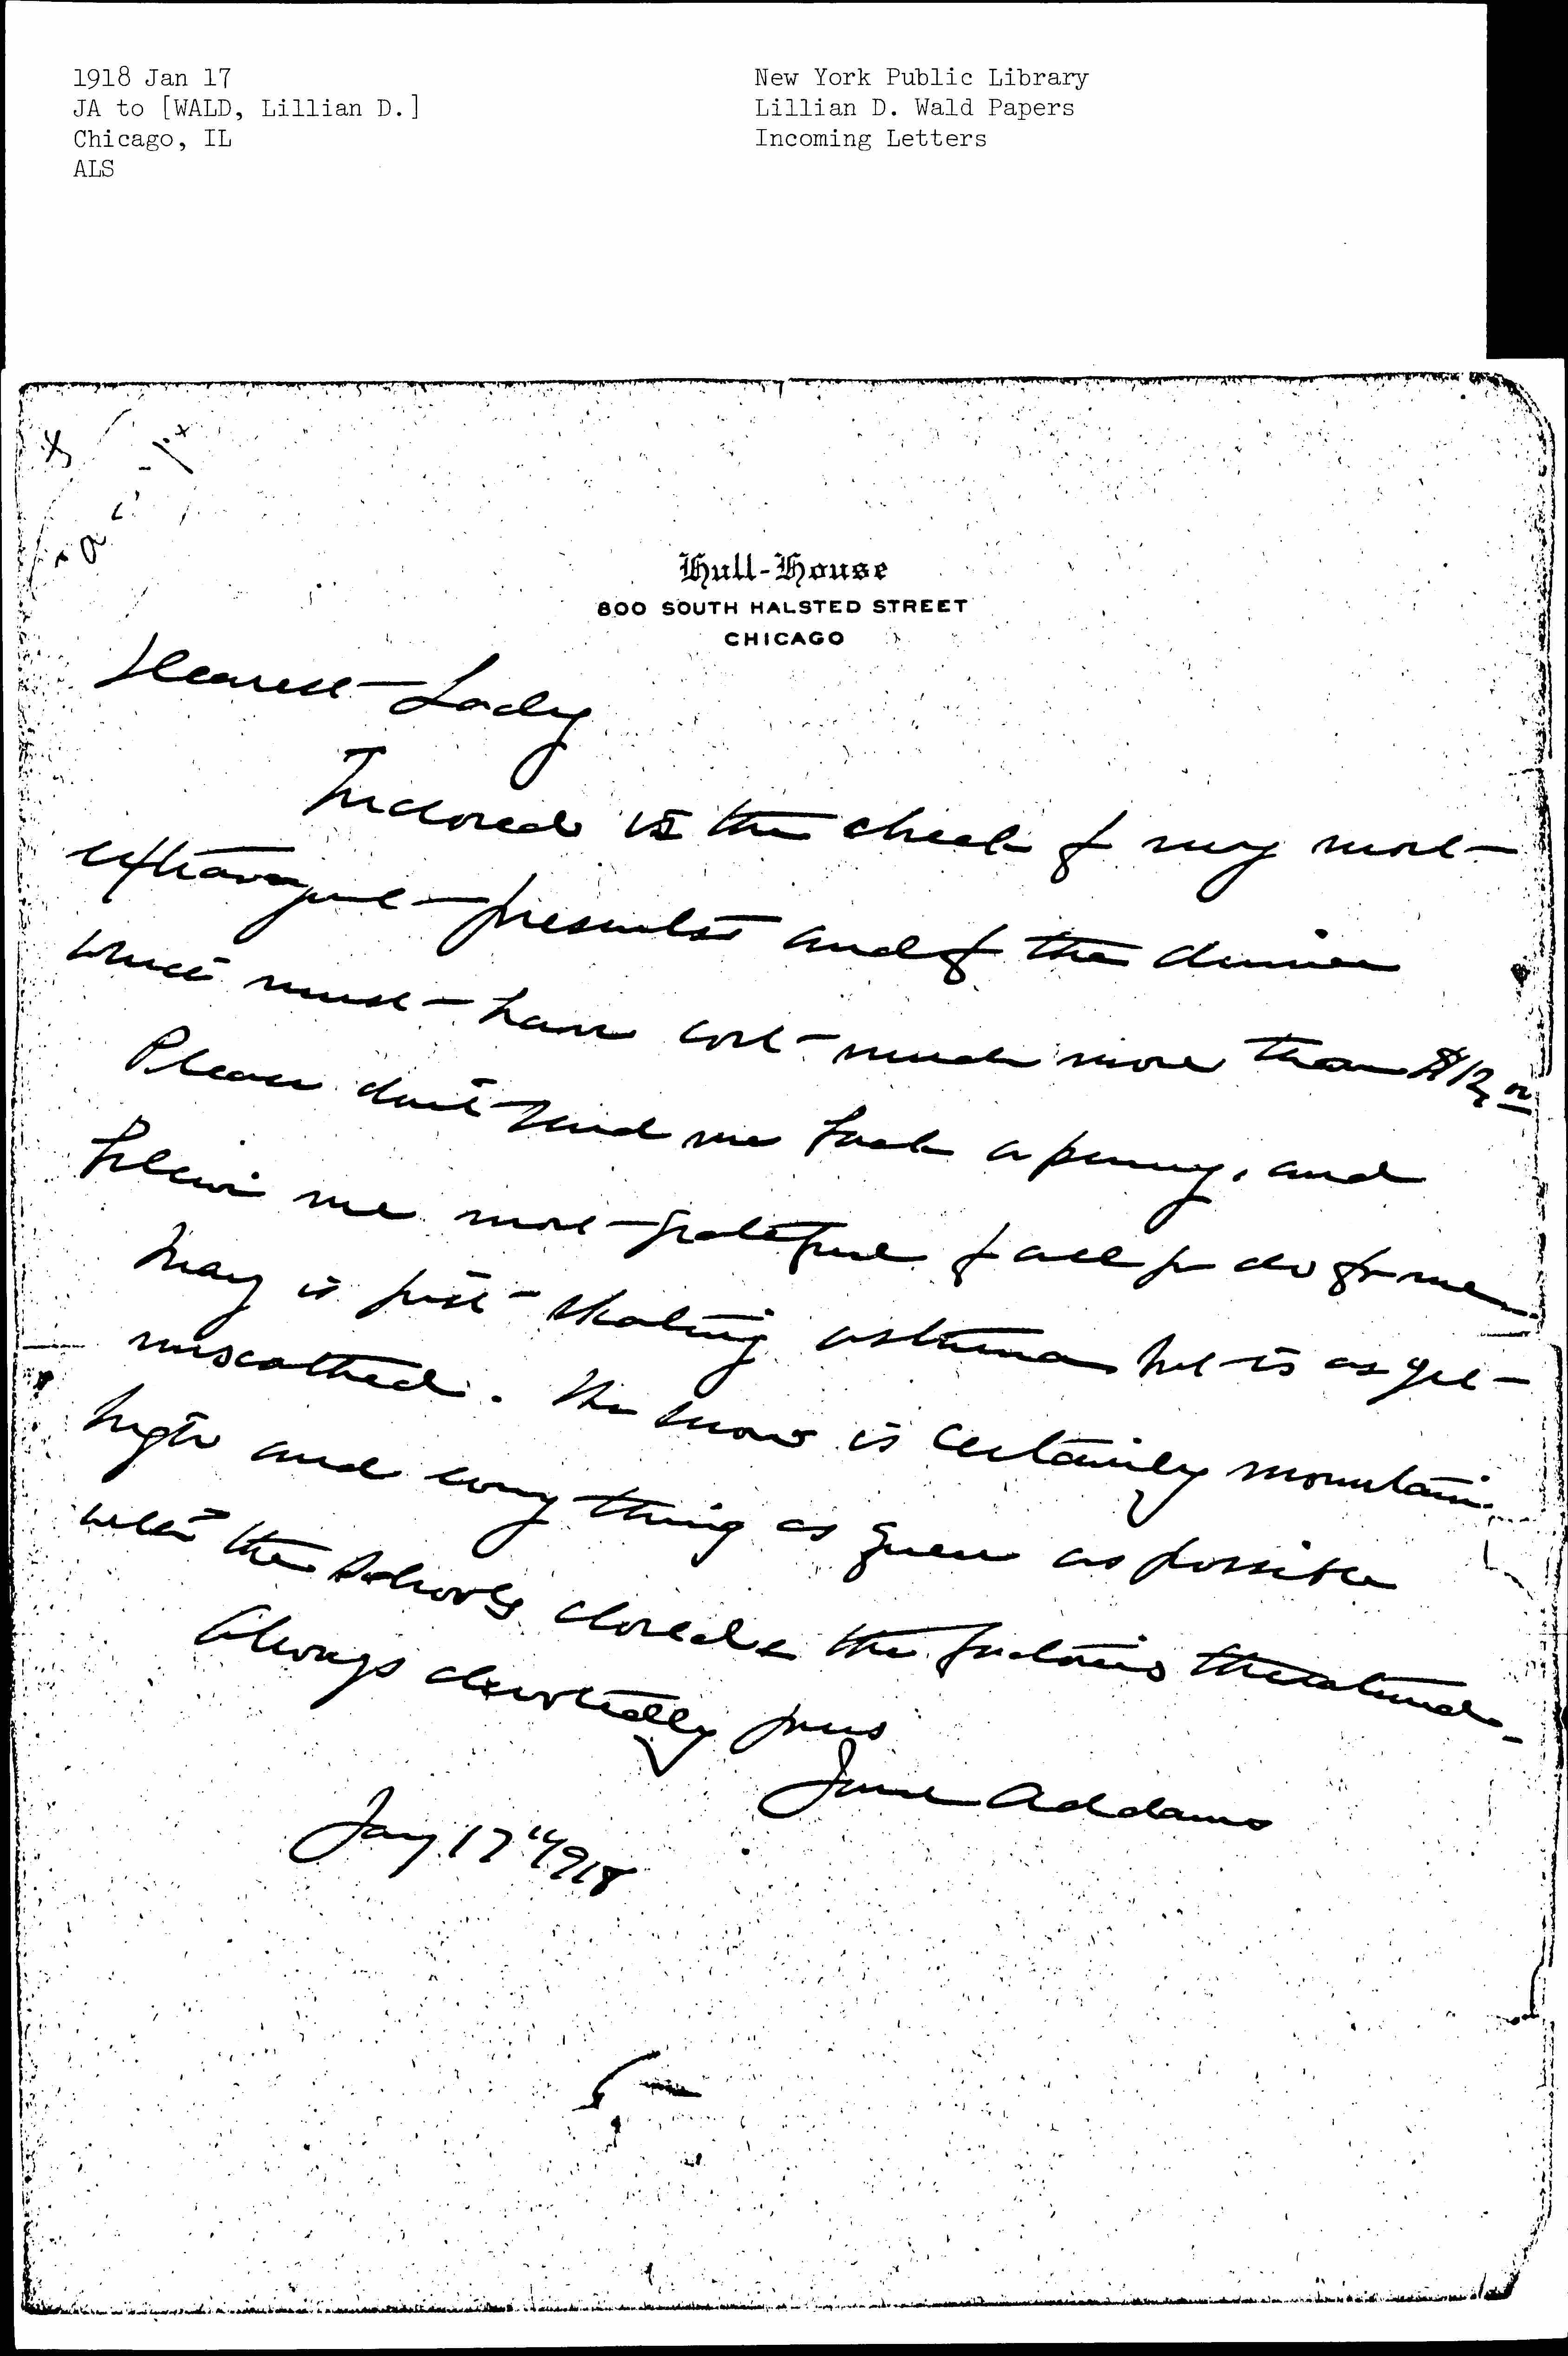 1918 Jan 17
JA to [WALD, Lillian D.]
Chicago, IL
ALS
New York Public Library
Lillian D. Wald Papers
Incoming Letters
Hull-House
800 SOUTH HALSTED STREET
CHICAGO
Dearest Lady
Inclosed is the check for my most
extravagant presents and for the dinner
which must have cost much more than $12
Please don't send me back a penny, and
believe me most grateful for all you do for me
Mary is just skating asthma but is as yet
unscathed. The snow is certainly mountain
high and every thing as queer as possible
with the schools closed & the factories threatened
Always devotedly yours
Jane Addams
Jany 17" 1918